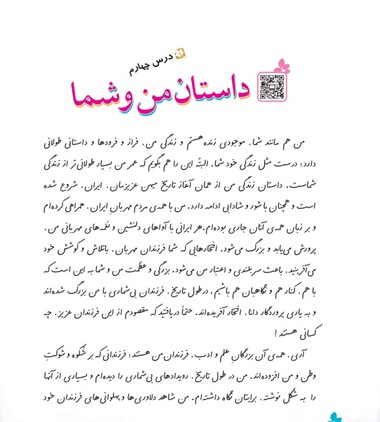 درس چهارم
داستان من و شما
من هم مانند شما، موجودی زنده هستم و زندگی من، فراز و فرودها و داستانی طولانی
دارد؛ درست مثل زندگی خود شما. البتّه این را هم بگویم که عمر من بسیار طولانی تر از زندگی
شماست. داستان زندگی من از همان آغاز تاریخ میهن عزیزمان، ایران، شروع شده
است و همچنان با شور و شادابی ادامه دارد. من با همه‌ی مردم مهربان ایران، همراهی کرده‌ام
و بر زبان همه‌ی آنان جاری بوده‌ام. هر ایرانی با آواهای دلنشین و نغمه‌های مهربانی من،
پرورش می‌یابد و بزرگ می‌شود. افتخارهایی که شما فرزندان مهربان، با تلاش و کوشش خود
می‌آفرینید، باعث سربلندی و اعتبار من می‌شود. بزرگی و عظمت من و شما به این است که
با هم، کنار هم و نگاهبان هم باشیم. در طول تاریخ، فرزندان بی‌شماری با من بزرگ شده‌اند
و به یاری پروردگار دانا، افتخار آفریده‌اند. حتماً دریافتید که مقصودم از این فرزندان عزیز، چه
کسانی هستند!
آری، همه‌ی آن بزرگان علم و ادب، فرزندان من هستند؛ فرزندانی که بر شکوه و شوکت
وطن و من افزوده‌اند. من در طول تاریخ، رویدادهای بی‌شماری را دیده‌ام و بسیاری از آنها
را به شکل نوشته، برایتان نگاه داشته‌ام. من شاهد دلاوری‌ها و پهلوانی‌های فرزندان خود